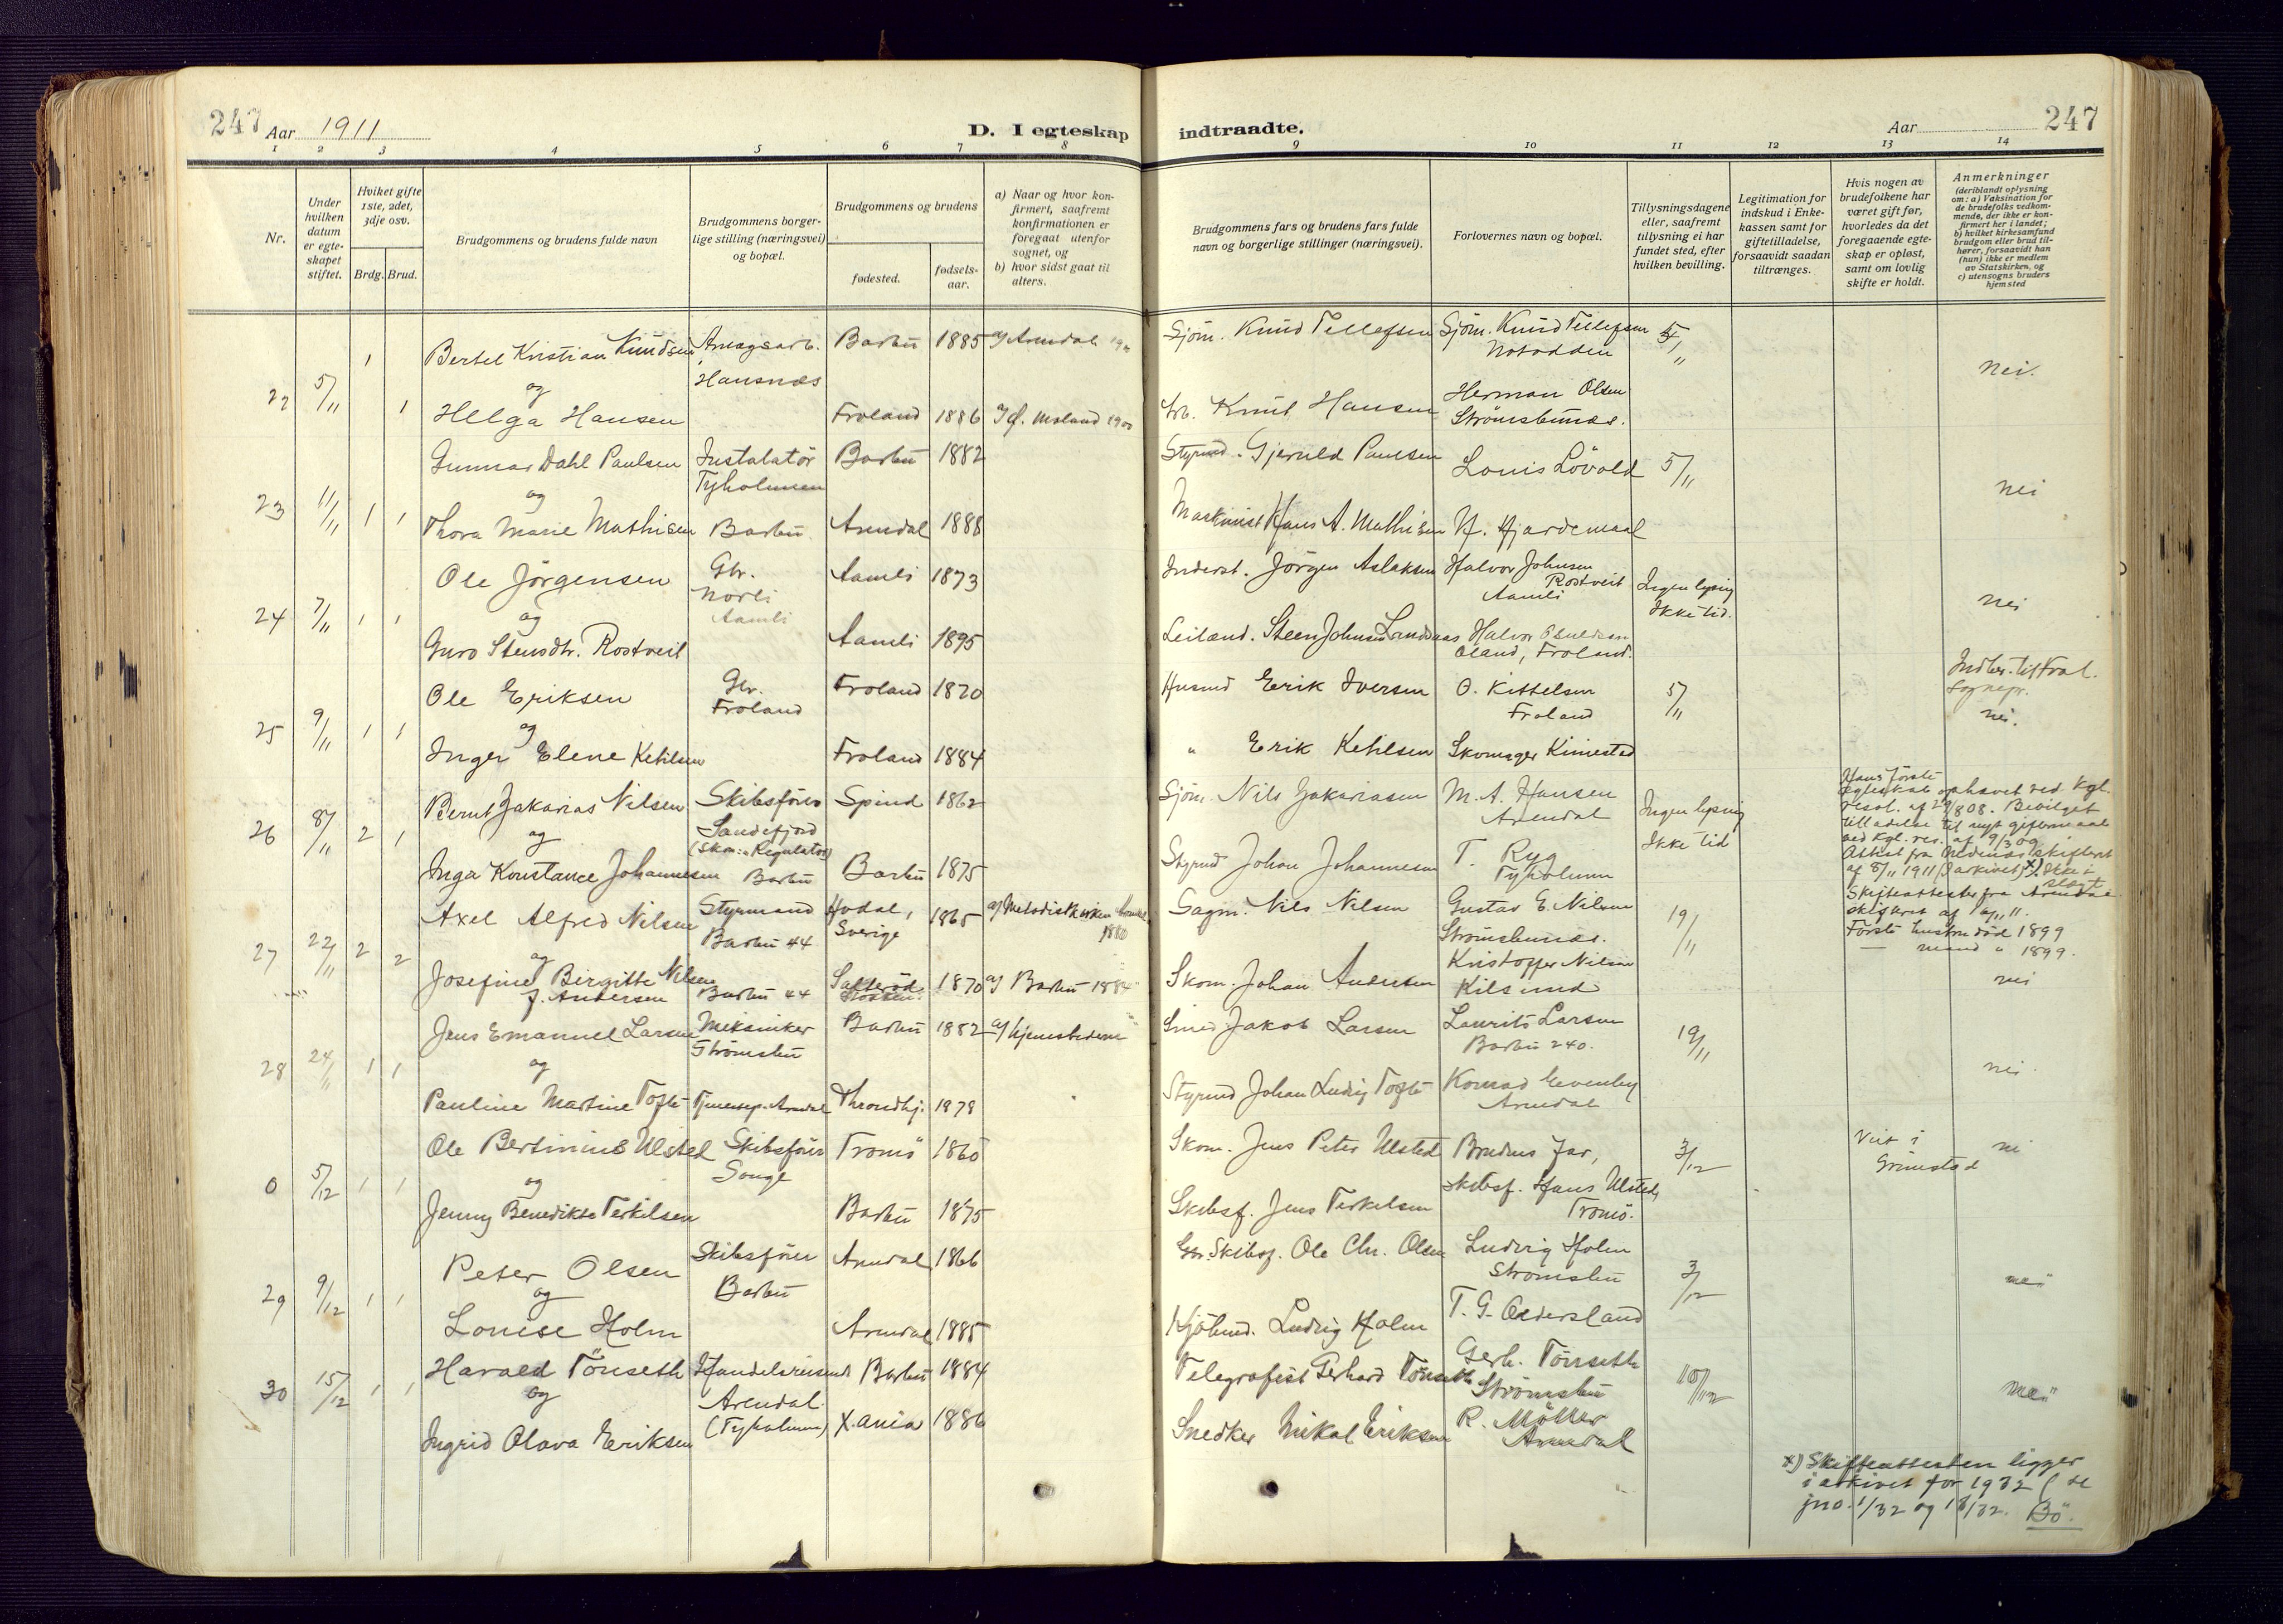 247 Aar 1911
D. I egteskap
indtraadte.
Aar 247
1 2 3 4 5 6 7 8 9 10 11 12 13 14
Nr.
Under hvilken datum er egteskapet stiftet.
Hviket gifte 1ste, 2det, 3dje osv.
Brdg. Brud.
Brudgommens og brudens fulde navn
Brudgommens borgerlige stilling (næringsvei) og bopæl.
Brudgommens og brudens
fødested.
fødselsaar.
a) Naar og hvor konfirmert, saafremt konfirmationen er foregaat utenfor sognet, og
b) hvor sidst gaat til alters.
Brudgommens fars og brudens fars fulde navn og borgerlige stillinger (næringsvei).
Forlovernes navn og bopæl.
Tillysningsdagene eller, saafremt tillysning ei har fundet sted, efter hvilken bevilling.
Legitimation for indskud i Enkekassen samt for giftetilladelse, forsaavidt saadan tiltrænges.
Hvis nogen av brudefolkene har været gift før, hvorledes da det foregaaende egteskap er opløst, samt om lovlig skifte er holdt.
Anmerkninger
(deriblandt oplysning om: a) Vaksination for de brudefolks vedkommende, der ikke er konfirmert her i landet; b) hvilket kirkesamfund brudgom eller brud tilhører, forsaavidt han (hun) ikke er medlem av Statskirken, og c) utensogns bruders hjemsted
22 5/11 1 Bertel Kristian Knudsen Barbu 1885 a) Arendal Sjöm. Knud Tellefsen Sjöm. Knud Tellefsen Notodden 5/11 nei.
og Hansnæs
1 Helga Hansen Froland 1886 Arb. Knut Hansen Herman Olsen Strömsbunæs.
23 11/11 1 1 Gunnar Dahl Paulsen Instalatör Tyholmen Barbu 1882 Styrmd. Gjeruld Paulsen Louis Lövold 5/11 nei
og
Thora Marie Mathisen Barbu Arendal 1888 Maskinist Hans A. Mathisen N. Hjardemaal
24 7/11 1 1 Ole Jörgensen Gbr. Norli Aamli Aamli 1873 Inderst. Jörgen Aslaksen Halvor Johnsen Rostveit Aamli Ingen lysing Ikke tid. nei
og
Guro Stensdtr. Rostveit Aamli 1895 Leilænd. Steen Johnsen Halvor Oland, Froland.
25 9/11 1 1 Ole Eriksen Gbr. Froland Froland 1870 Husmd Erik Iversen O. Kittelsen Froland 5/11 nei.
og
Inger Elene Ketilsen Froland 1884 " Erik Ketilsen Skomager Kimestad
26 8/11 2 1 Bernt Zakarias Nilsen Skibsförer Sandefjord Spind 1862 Sjöm. Nils Zakariasen M. A. Hansen Arendal Ingen lysing Ikke tid
og (Skon: "Regulator")
Inga Konstance Johannesen Barbu Barbu 1875 Styrmd Johan Johannesen T. Ryg Tyholmen
Hans förste egteskab ophævet ved Kgl. resol. af 29/8 08. Bevilget tilladelse til nyt giftermaal ved Kgl. res. af 9/3 09.
Attest fra Nedenæs skifteret af 8/11 1911 (i arkivet) x)
27 22/11 2 2 Axel Alfred Nilsen Styrmand Barbu 44 Sverige 1865 a) Metodistkirken Arendal 1880 Sagm. Nils Nilsen Gustav E. Nilsen Strömsbunæs. 19/11
Skifteattester fra Arendals skifteret
Förste hustru död 1899
— mand " 1899.
og
Josefine Birgitte Nilsen f. Andersen Barbu 44 1870 a) Barbu 1884 Skom. Johan Andersen Kristoffer Nilsen Kilsund nei
28 24/11 1 1 Jens Emanuel Larsen Mekaniker Strömsbu Barbu 1882 a) Hjemstederne Smed Jakob Larsen Laurits Larsen Barbu 240. 19/11 nei
og
Pauline Martine Tofte Tjenestep. Arendal Throndhj. 1879 Styrmd Johan Ludvig Tofte Konrad Evenby Arendal
0 5/12 1 1 Ole Bertinius Ulsted Skibsförer Songe Tromö 1860 Skom. Jens Peter Ulsted Brudens far, 3/12 Viet i Grimstad nei
og
Jenny Benedikte Terkelsen Barbu 1875 Skibsf. Jens Terkelsen Skibsf. Hans Ulsted, Tromö.
29 9/12 1 1 Peter Olsen Skibsförer Barbu Arendal 1866 Skibsf. Ole Chr. Olsen Ludvig Holm Strömsbu 3/12 nei
og
Louise Holm Arendal 1885 Kjöbmd. Ludvig Holm T. G. Oldersland
30 15/12 1 1 Harald Tönseth Handelsreisende Arendal. (Tyholmen) Barbu 1884 Telegrafist Gerhard Tönseth Gerh. Tönseth Strömsbu 10/12 nei
og
Ingrid Olava Eriksen X.ania 1886 Snedker Mikal Eriksen R. Möller Arendal
x) Skifteattesten ligger
i arkivet for 1932 (se
jno. 1/32 og 18/32. Bö.